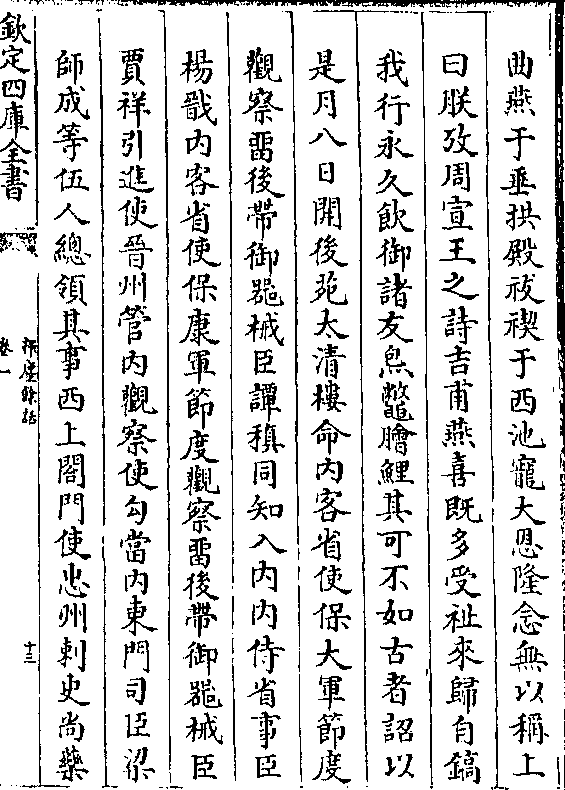 曲燕于垂拱殿祓禊于西池寵大恩隆念無以稱上
曰朕攷周宣王之詩吉甫燕喜既多受祉來歸自鎬
我行永久飲御諸友炰鼈膾鯉其可不如古者詔以
是月八日開後苑太清樓命内客省使保大軍節度
觀察留後帶御器械臣譚稹同知入内内侍省事臣
楊戩内客省使保康軍節度觀察留後帶御器械臣
賈祥引進使晉州管内觀察使勾當内東門司臣梁
師成等伍人總領其事西上閤門使忠州刺史尚藥
欽定四庫全書
揮麈餘話
卷一
十三